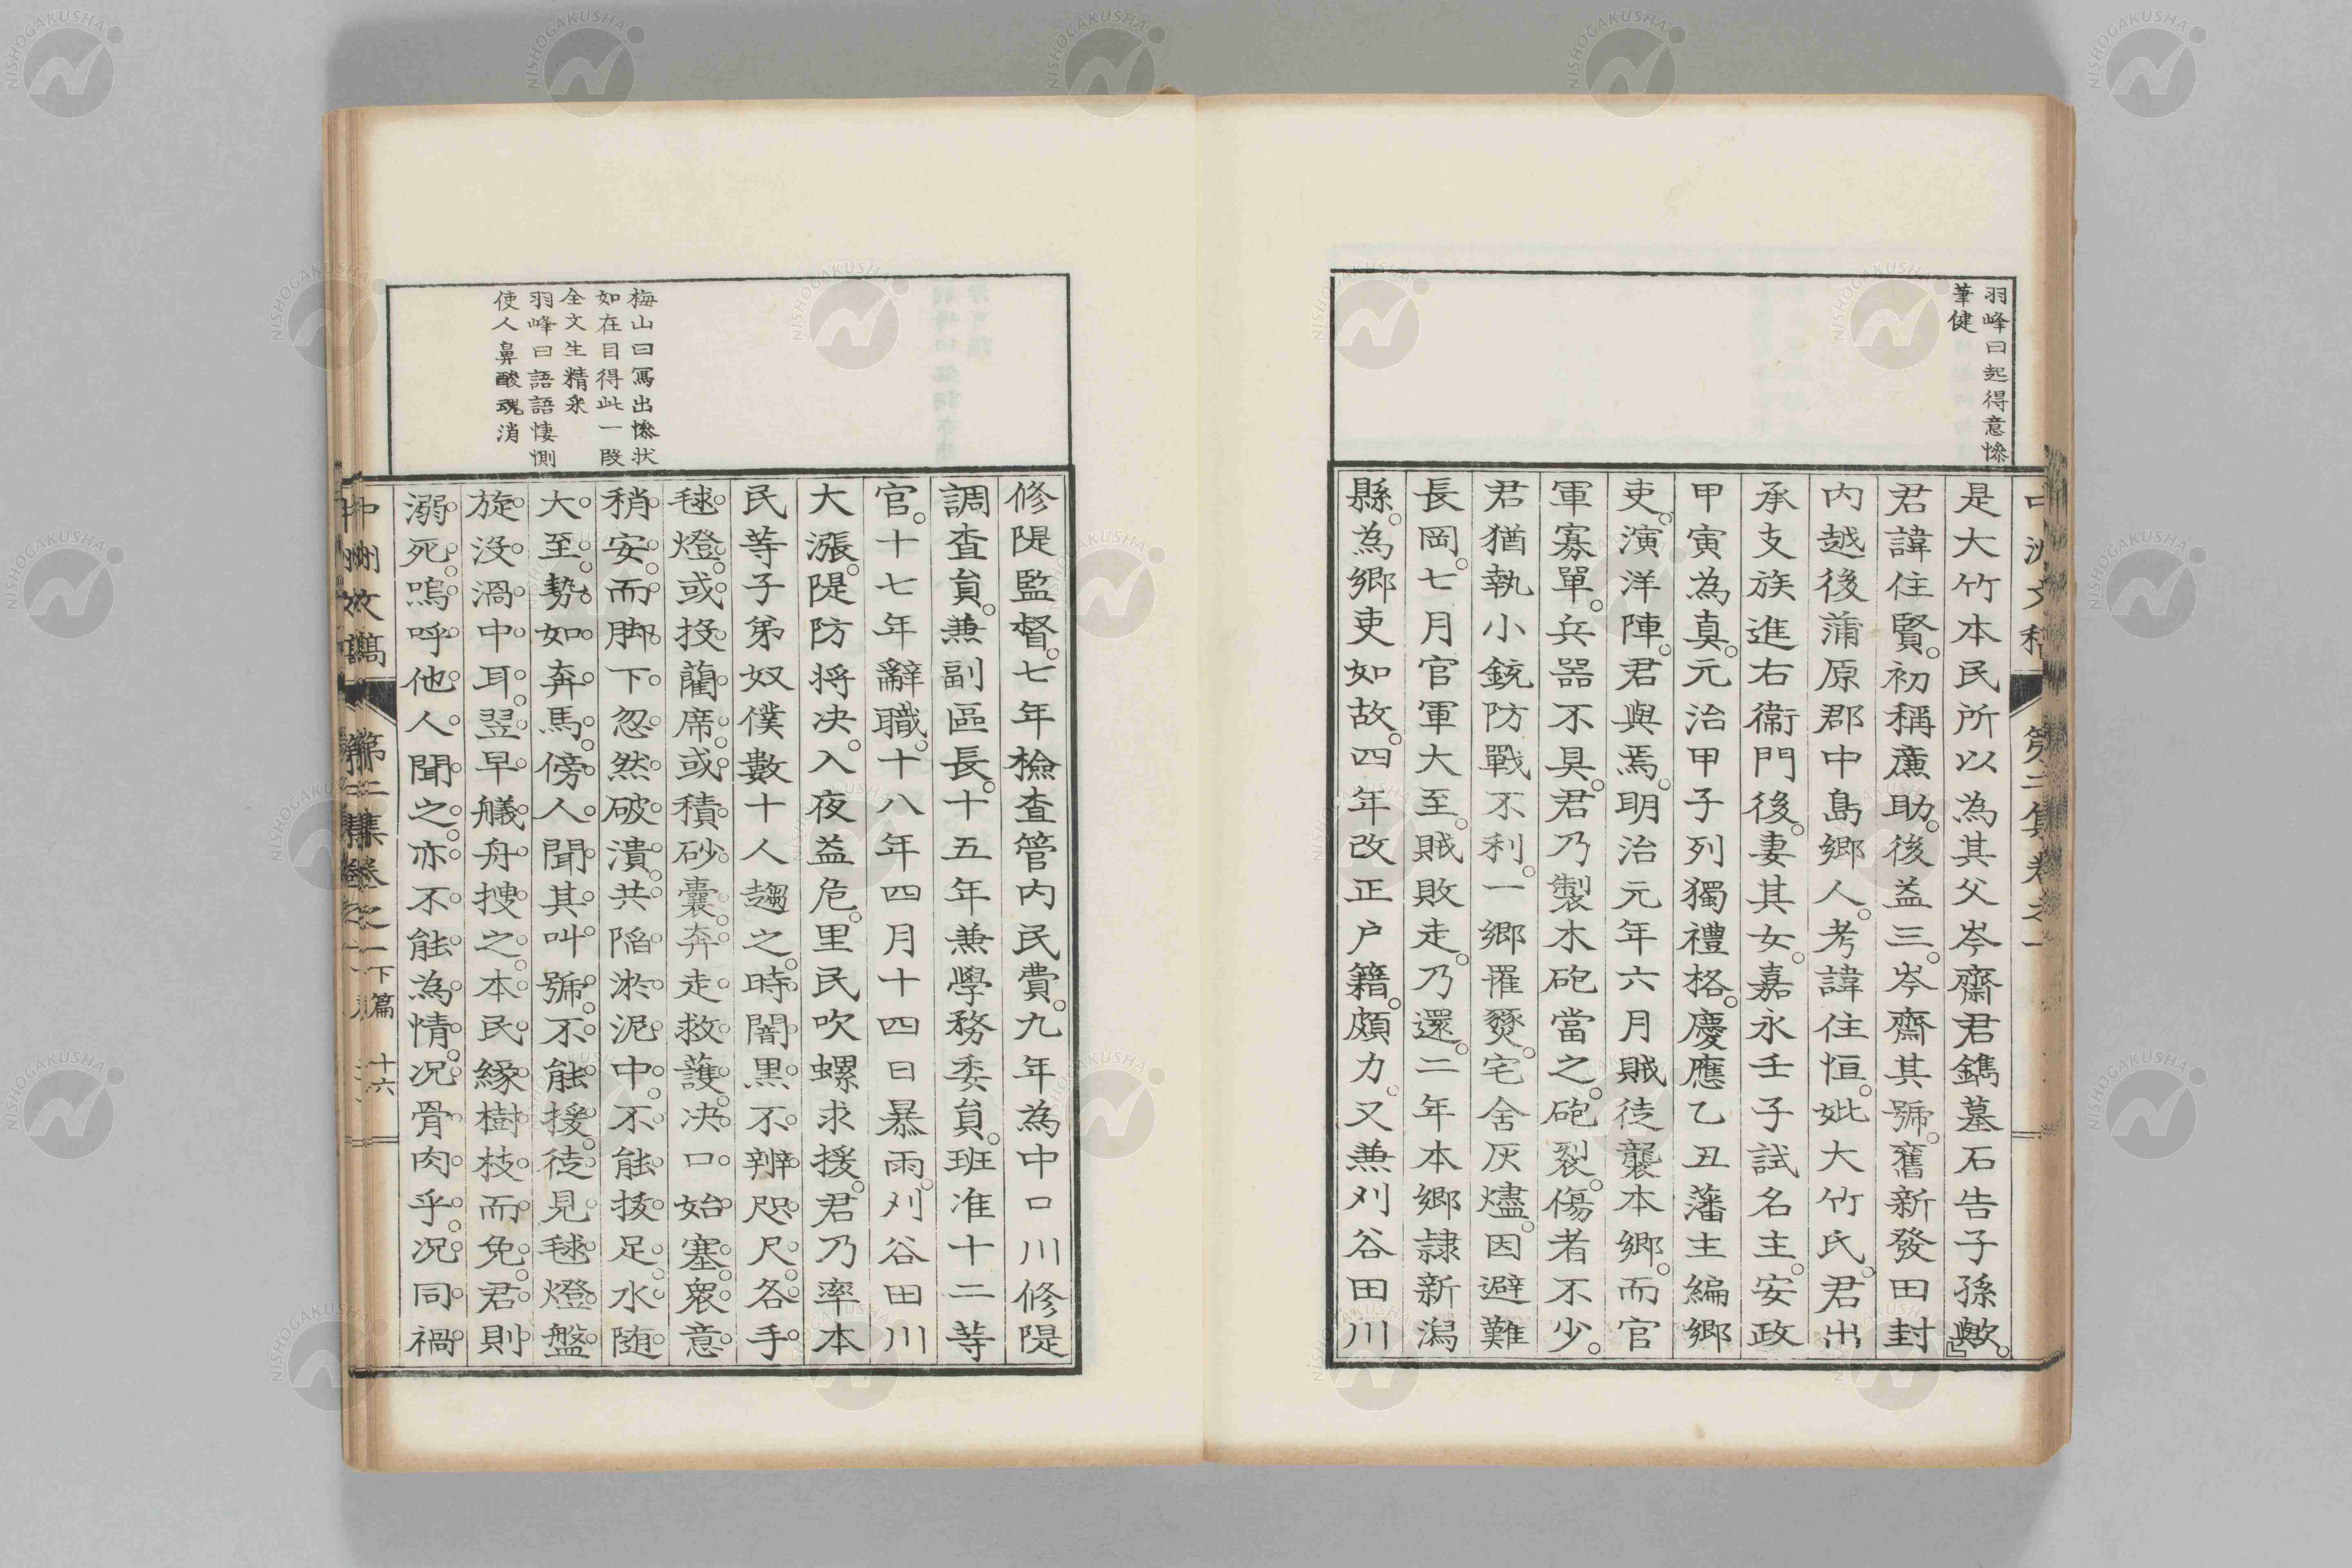 羽峰曰起得意慘
筆健
是大竹本民所以為其父岑齋君鐫墓石告子孫歟。』
君諱住賢。初稱廉助。後益三。岑齋其號。舊新發田封
内越後蒲原郡中島鄉人。考諱住恒。妣大竹氏。君出
承支族進右衞門後。妻其女。嘉永壬子試名主。安政
甲寅為真。元治甲子列獨禮格。慶應乙丑藩主編鄉
吏。演洋陣。君與焉。明治元年六月賊徒襲本鄉。而官
軍寡單。兵器不具。君乃製木砲當之。砲裂。傷者不少。
君猶執小銃防戰不利。一鄉罹燹。宅舍灰燼。因避難
長岡。七月官軍大至。賊敗走。乃還。二年本鄉隷新潟
縣。為鄉吏如故。四年改正户籍。頗力。又兼刈谷田川
修隄監督。七年檢查管内民費。九年為中口川修隄
調查員。兼副區長。十五年兼學務委員。班准十二等
官。十七年辭職。十八年四月十四日暴雨。刈谷田川
大漲。隄防将决。入夜益危。里民吹螺求援。君乃率本
民等子弟奴僕數十人趨之。時闇黑不辨咫尺。各手
毬燈。或投藺席。或積砂囊。奔走救護。决口始塞。衆意
稍安。而脚下忽然破潰。共陷淤泥中。不能拔足。水随
大至。勢如奔馬。傍人聞其叫號。不能援。徒見毬燈盤
旋没渦中耳。翌早艤舟搜之。本民緣樹枝而免。君則
溺死。嗚呼他人聞之。亦不能為情。况骨肉乎。况同禍
梅山曰寫出慘状
如在目得此一段
全文生精采
羽峰曰語語悽惻
使人鼻酸魂消
下篇
十六